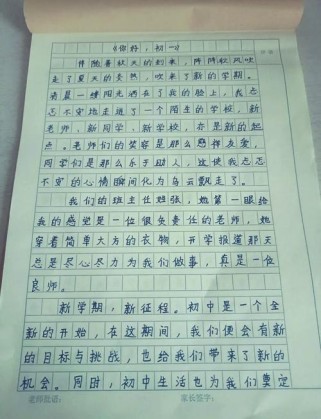 《你好，初一》
伴随着秋天的到来，阵阵秋风吹
走了夏天的炎热，吹来了新的学期。
清晨一缕阳光洒在了我的脸上，我忐
忑不安地走进了一个陌生的学校，新
老师，新同学，新学校，亦是新的起
点。老师们的笑容是那么慈祥友爱，
同学们是那么乐于助人，这使我忐忑
不安的心情瞬间化为乌云飘走了。
我们的班主任姓张，她第一眼给
我的感觉是一位很负责任的老师，她
穿着简单大方的衣物，开学报道那天
总是尽心尽力为我们做事，真是一位
良师。
新学期，新征程。初中是一个全
新的开始，在这期间，我们便会有新
的目标与挑战，也给我们带来了新的
机会。同时，初中生活也为我们奠定
老师批语： 家长签字：